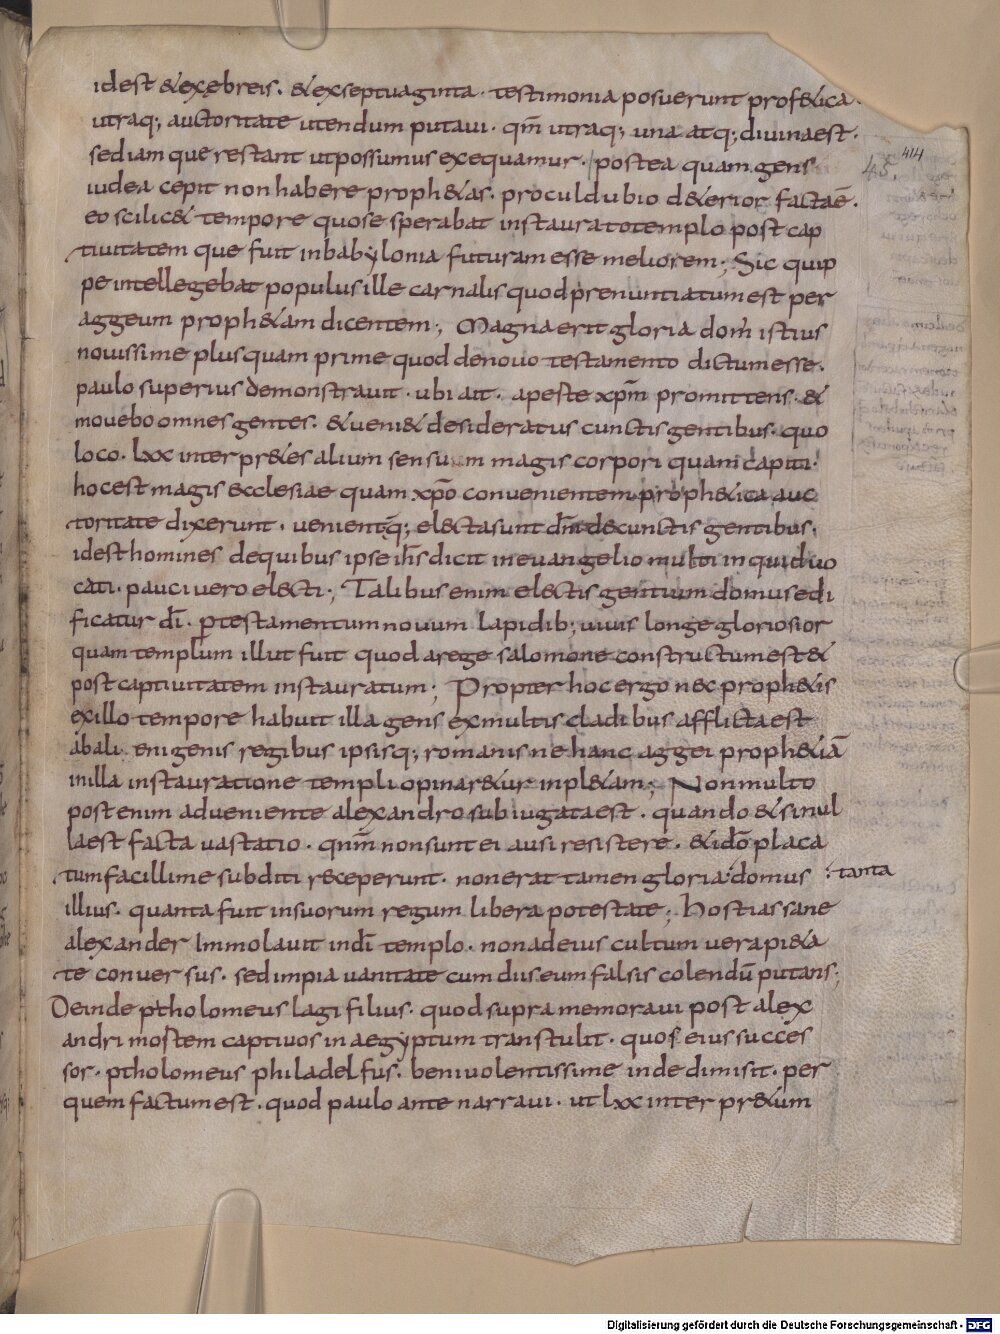 idest & exębreis. & exseptuaginta. testimonia posuerunt prof&ica.
utraq; auctoritate utendum putaui. qm̄ utraq; una atq; diuinaest.
sediam que restant utpossumus exequamur. postea quam gens
iudea cepit non habere proph&as. proculdubio d&erior factaē.
eo scilic& tempore quose sperabat instauratotemplo post cap
tiuitatem que fuit inbabylonia futuram esse meliorem; Sic quip
pe intellegebat populus ille carnalis quod prenuntiatum est per
aggeum proph&am dicentem; Magna erit gloria dom' istius
nouissime plus quam prime quod denouo testamento dictum esse.
paulo superius demonstrauit. ubi ait. aperte xp̄m promittens. &
mouebo omnes gentes. & ueni& desideratus cunctis gentibus. quo
loco. lxx interpr&es alium sensum magis corpori quam capiti.
hocest magis ecclesiae quam xp̄o conuenientem proph&ica auc
toritate dixerunt. uenientq; electa sunt dn̄i decunctis gentibus.
idest homines dequibus ipse ih̄s dicit ineuangelio multi inquid uo
cati. pauci uero electi; Talibus enim electis gentium domus edi
ficatur dī. ptestamentum nouum lapidib; uiuis longe gloriosior
quam templum illut fuit quod arege salomone constructum est &
post captiuitatem instauratum; Propter hoc ergo nec proph&is
exillo tempore habuit illa gens ex multis cladibus afflicta est
abali enigenis regibus ipsisq; romanis ne hanc aggei proph&iā
inilla instauratione templi opinar&ur inpl&am; Non multo
post enim adueniente alexandro subiugata est. quando & sinul
laest facta uastatio. qnm̄ non sunt ei ausi resistere. & idō placa
tum facillime subditi receperunt. non erat tamen gloria domus tanta
illius. quanta fuit in suorum regum libera potestate; Hostias sane
alexander Immolauit indī templo. non adeius cultum uera pi&a
te conuersus. sed impia uanitate cum diis eum falsis colendū putans;
Deinde ptholomeus lagi filius. quod supra memoraui post alex
andri mostem captiuos in aegyptum transtulit. quos eius succes
sor. ptholomeus philadelfus. beniuolentissime inde dimisit. per
quem factum est. quod paulo ante narraui. ut lxx interpr&um
45 414
Digitalisierung gefördert durch die Deutsche Forschungsgemeinschaft - DFG